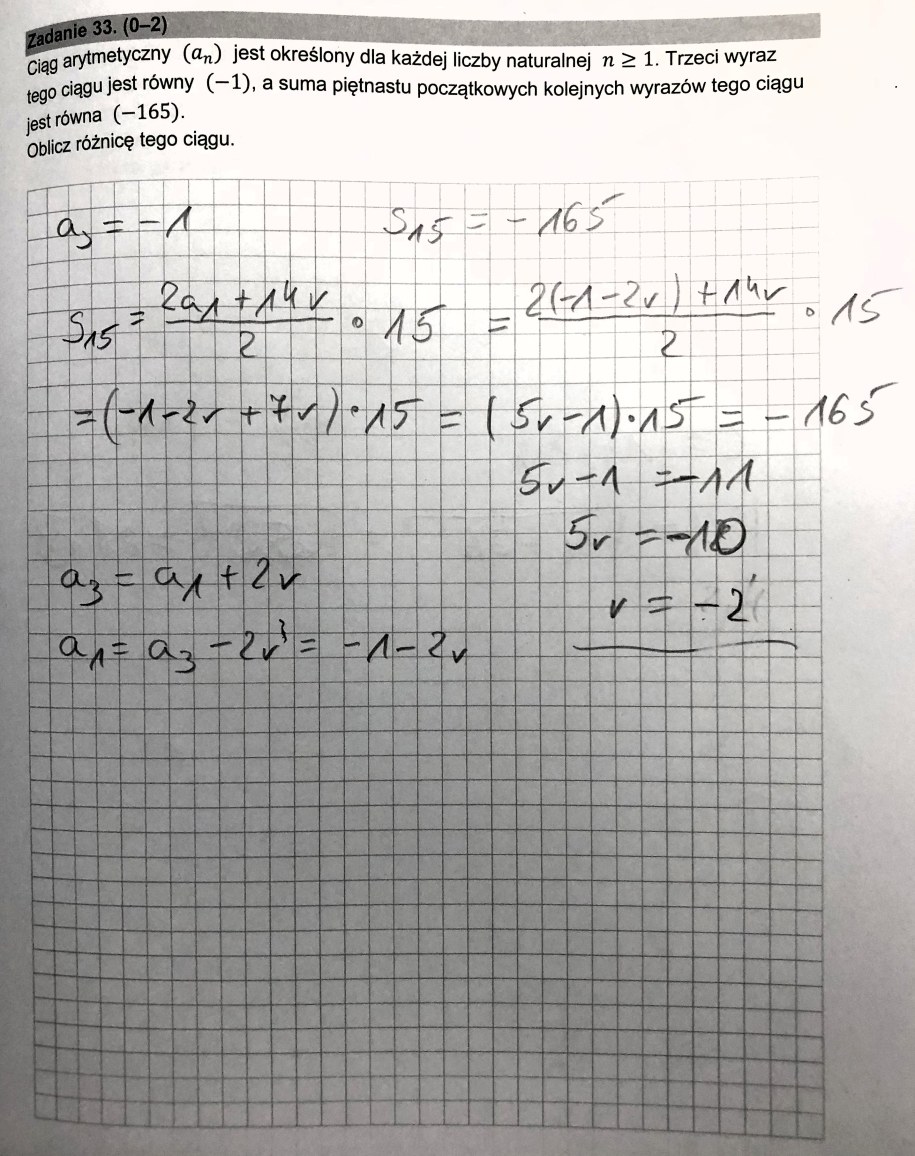 Zadanie 33. (0–2)
Ciąg arytmetyczny (aₙ) jest określony dla każdej liczby naturalnej n ≥ 1. Trzeci wyraz
tego ciągu jest równy (−1), a suma piętnastu początkowych kolejnych wyrazów tego ciągu
jest równa (−165).
Oblicz różnicę tego ciągu.
a₃ = −1 S₁₅ = −165
S₁₅ = (2a₁ + 14r)/2 · 15 = (2(−1−2r) + 14r)/2 · 15
= (−1−2r + 7r) · 15 = (5r−1) · 15 = −165
5r−1 = −11
5r = −10
a₃ = a₁ + 2r
r = −2
a₁ = a₃ − 2r = −1−2r